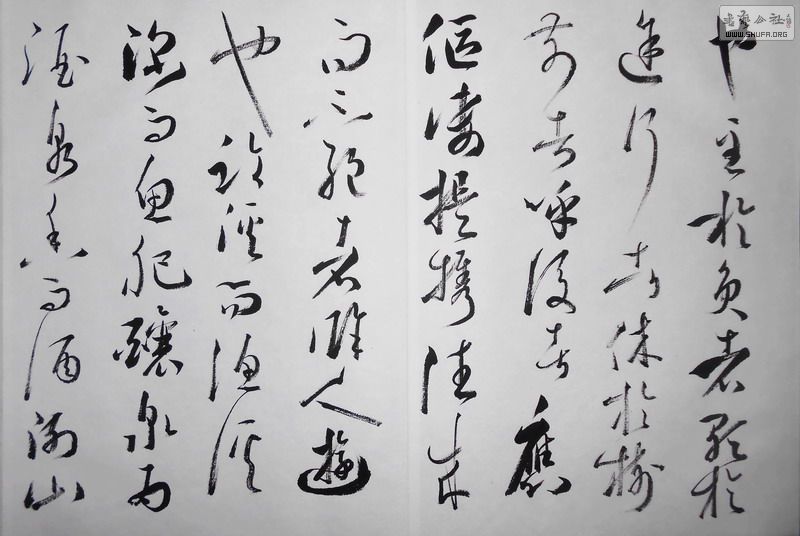 也至於負者歌於
途行者休於樹
前者呼後者應
傴僂提攜往來
而不絕者滁人遊
也臨溪而漁溪
深而魚肥釀泉為
酒泉香而酒洌山
書藝公社
WWW.SHUFA.ORG